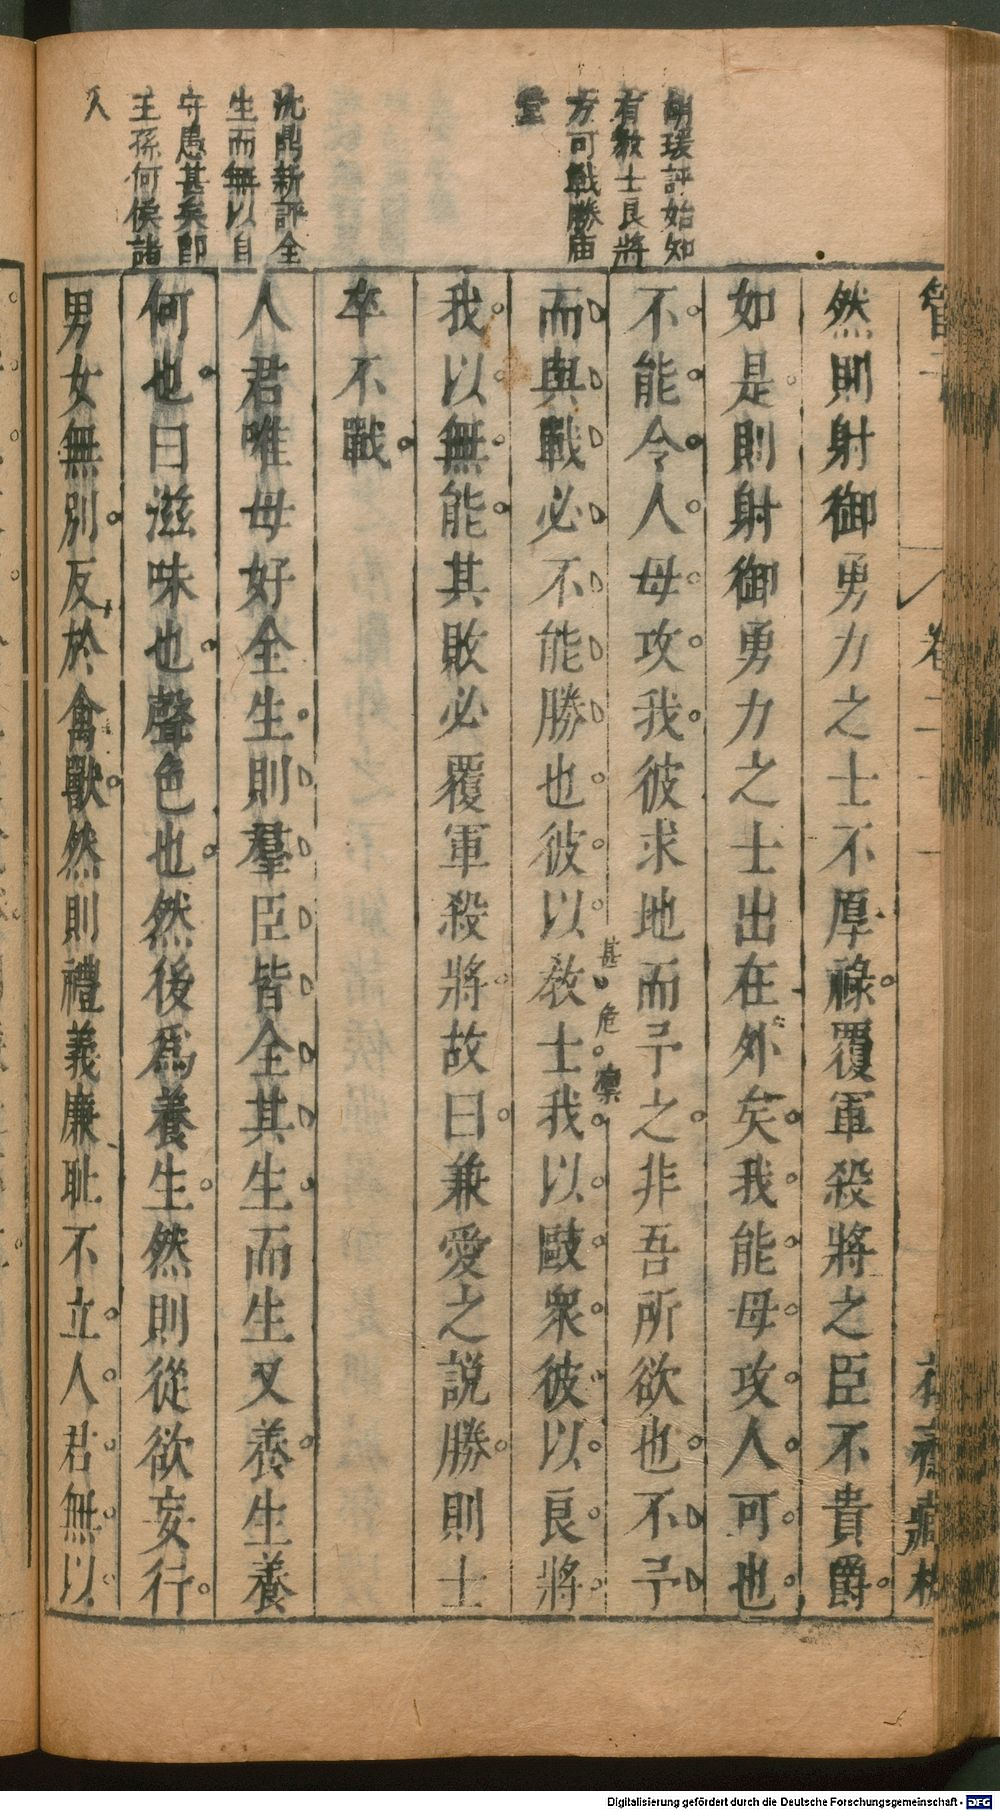 胡瑗評始知
有敎士良將
方可戰勝庙
堂
沈鼎新評全
生而無以自
守愚甚矣即
王孫何侯諸
人
管子
卷二十一
花齋藏板
然則射御勇力之士不厚祿覆軍殺將之臣不貴爵
如是則射御勇力之士出在外矣我能毋攻人可也
不能令人毋攻我彼求地而予之非吾所欲也不予
而與戰必不能勝也彼以敎士我以敺衆彼以良將
甚危懍
我以無能其敗必覆軍殺將故曰兼愛之説勝則士
卒不戰
人君唯毋好全生則羣臣皆全其生而生又養生養
何也曰滋味也聲色也然後爲養生然則從欲妄行
男女無別反於禽獸然則禮義廉耻不立人君無以
Digitalisierung gefördert durch die Deutsche Forschungsgemeinschaft - DFG